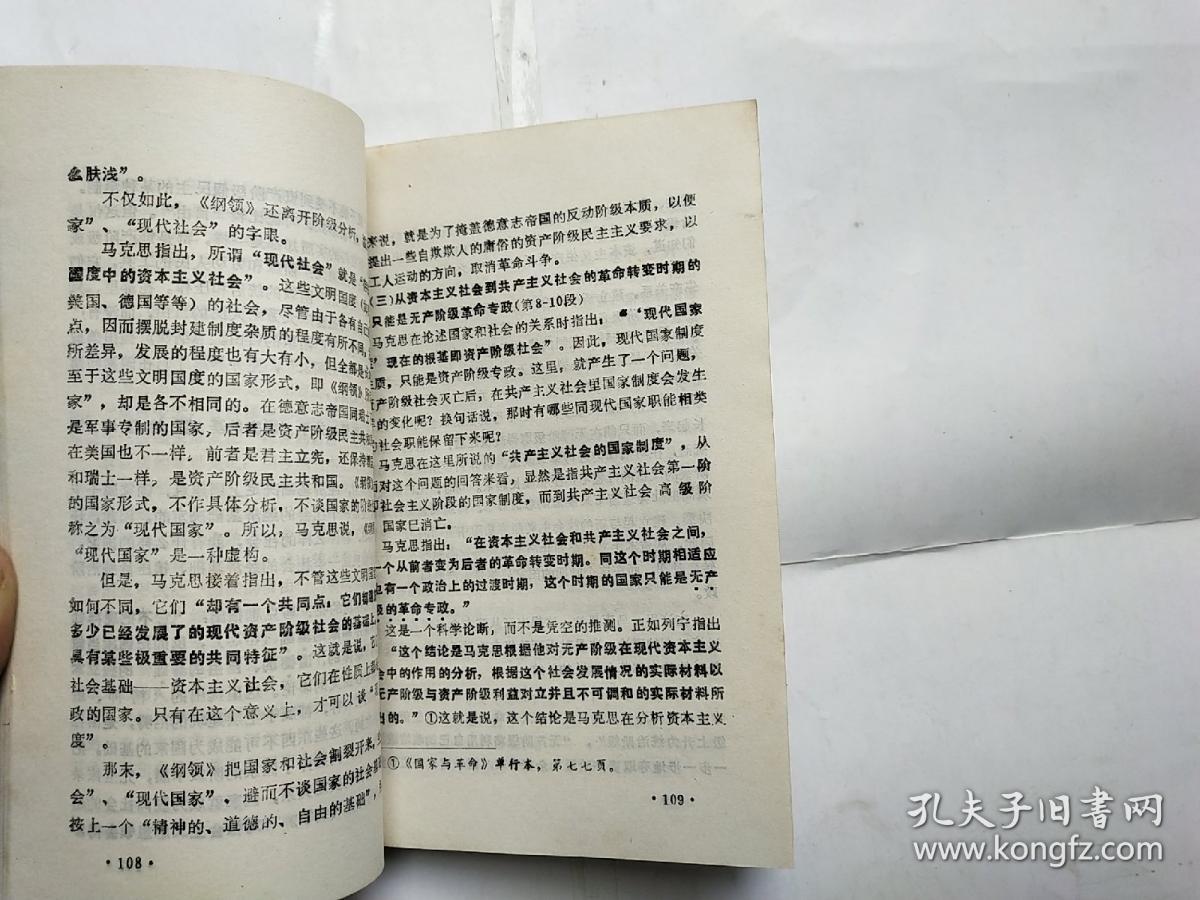 么肤浅”。
不仅如此，《纲领》还离开阶级分析，
家”、“现代社会”的字眼。
马克思指出，所谓“现代社会”就是“
国度中的资本主义社会”。这些文明国度（
美国、德国等等）的社会，尽管由于各有自
点，因而摆脱封建制度杂质的程度有所不同，
所差异，发展的程度也有大有小，但全都是
至于这些文明国度的国家形式，即《纲领》
家”，却是各不相同的。在德意志帝国同瑞士
是军事专制的国家，后者是资产阶级民主共
在美国也不一样。前者是君主立宪，还保持
和瑞士一样，是资产阶级民主共和国。《纲领
的国家形式，不作具体分析，不谈国家的阶
称之为“现代国家”。所以，马克思说，
“现代国家”是一种虚构。
但是，马克思接着指出，不管这些文明国
如何不同，它们“却有一个共同点：它们都
多少已经发展了的现代资产阶级社会的基础上
具有某些极重要的共同特征”。这就是说，它
社会基础——资本主义社会，它们在性质上都
政的国家。只有在这个意义上，才可以谈“
度”。
那末，《纲领》把国家和社会割裂开来，
会”、“现代国家”、避而不谈国家的社会基
按上一个“精神的、道德的、自由的基础”，
·108·
来说，就是为了掩盖德意志帝国的反动阶级本质，以便
提出一些自欺欺人的庸俗的资产阶级民主主义要求，以
工人运动的方向，取消革命斗争。
（三）从资本主义社会到共产主义社会的革命转变时期的
只能是无产阶级革命专政（第8-10段）
马克思在论述国家和社会的关系时指出：“‘现代国家
’现在的根基即资产阶级社会”。因此，现代国家制度
质，只能是资产阶级专政。这里，就产生了一个问题，
产阶级社会灭亡后，在共产主义社会里国家制度会发生
的变化呢？换句话说，那时有哪些同现代国家职能相类
社会职能保留下来呢？
马克思在这里所说的“共产主义社会的国家制度”，从
对这个问题的回答来看，显然是指共产主义社会第一阶
社会主义阶段的国家制度，而到共产主义社会高级阶
国家已消亡。
马克思指出：“在资本主义社会和共产主义社会之间，
一个从前者变为后者的革命转变时期。同这个时期相适应
也有一个政治上的过渡时期，这个时期的国家只能是无产
级的革命专政。”
这是一个科学论断，而不是凭空的推测。正如列宁指出
“这个结论是马克思根据他对无产阶级在现代资本主义
会中的作用的分析，根据这个社会发展情况的实际材料以
无产阶级与资产阶级利益对立并且不可调和的实际材料所
出的。”①这就是说，这个结论是马克思在分析资本主义
①《国家与革命》单行本，第七七页。
·109·
孔夫子旧书网
www.kongfz.com